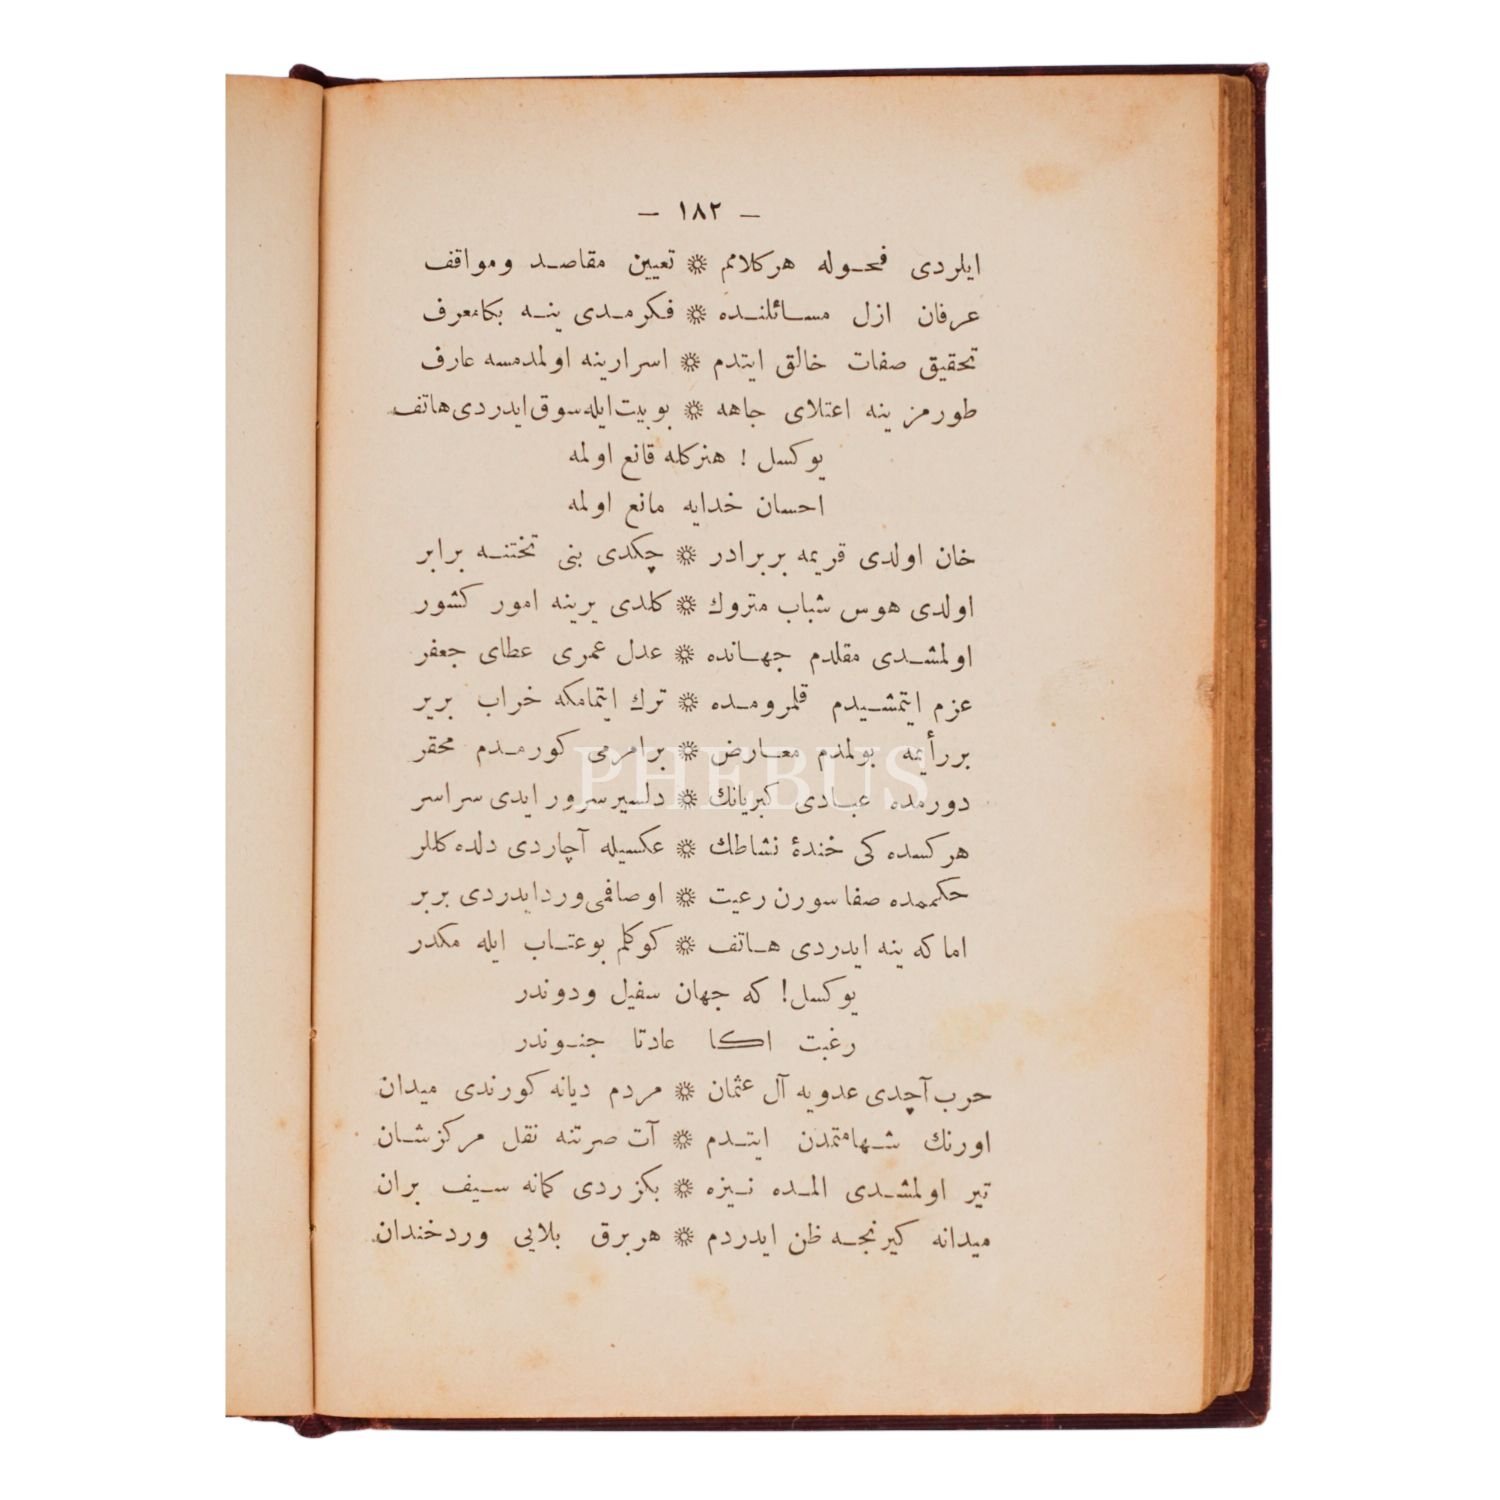 — ١٨٢ —
ايلردى فحوله هركلامم ❊ تعيين مقاصد ومواقف
عرفان ازل مسائلنده ❊ فكرمدى ينه بكا معرف
تحقيق صفات خالق ايتدم ❊ اسرارينه اولمدمسه عارف
طورمز ينه اعتلاى جاهه ❊ بوبيت ايله سوق ايدردى هاتف
يوكسل ! هنركله قانع اولمه
احسان خدايه مانع اولمه
خان اولدى قريمه بربرادر ❊ چكدى بنى تختنه برابر
اولدى هوس شباب متروك ❊ كلدى يرينه امور كشور
اولمشدى مقلدم جهانده ❊ عدل عمرى عطاى جعفر
عزم ايتمشيدم قلمرومده ❊ ترك ايتمامكه خراب برير
بررأيمه بولمدم معارض ❊ برامرمى كورمدم محقر
دورمده عبادى كبريانك ❊ دلسير سرور ايدى سراسر
هركسده كى خندۀ نشاطك ❊ عكسيله آچاردى دلده كللر
حكممده صفا سورن رعيت ❊ اوصافمى ورد ايدردى بربر
اما كه ينه ايدردى هاتف ❊ كوكلم بوعتاب ايله مكدر
يوكسل! كه جهان سفيل ودوندر
رغبت اكا عادتا جنوندر
حرب آچدى عدويه آل عثمان ❊ مردم ديانه كورندى ميدان
اورنك شهامتمدن ايتدم ❊ آت صرتنه نقل مركز شان
تير اولمشدى المده نيزه ❊ بكزردى كمانه سيف بران
ميدانه كيرنجه ظن ايدردم ❊ هربرق بلايى ورد خندان
PHEBUS